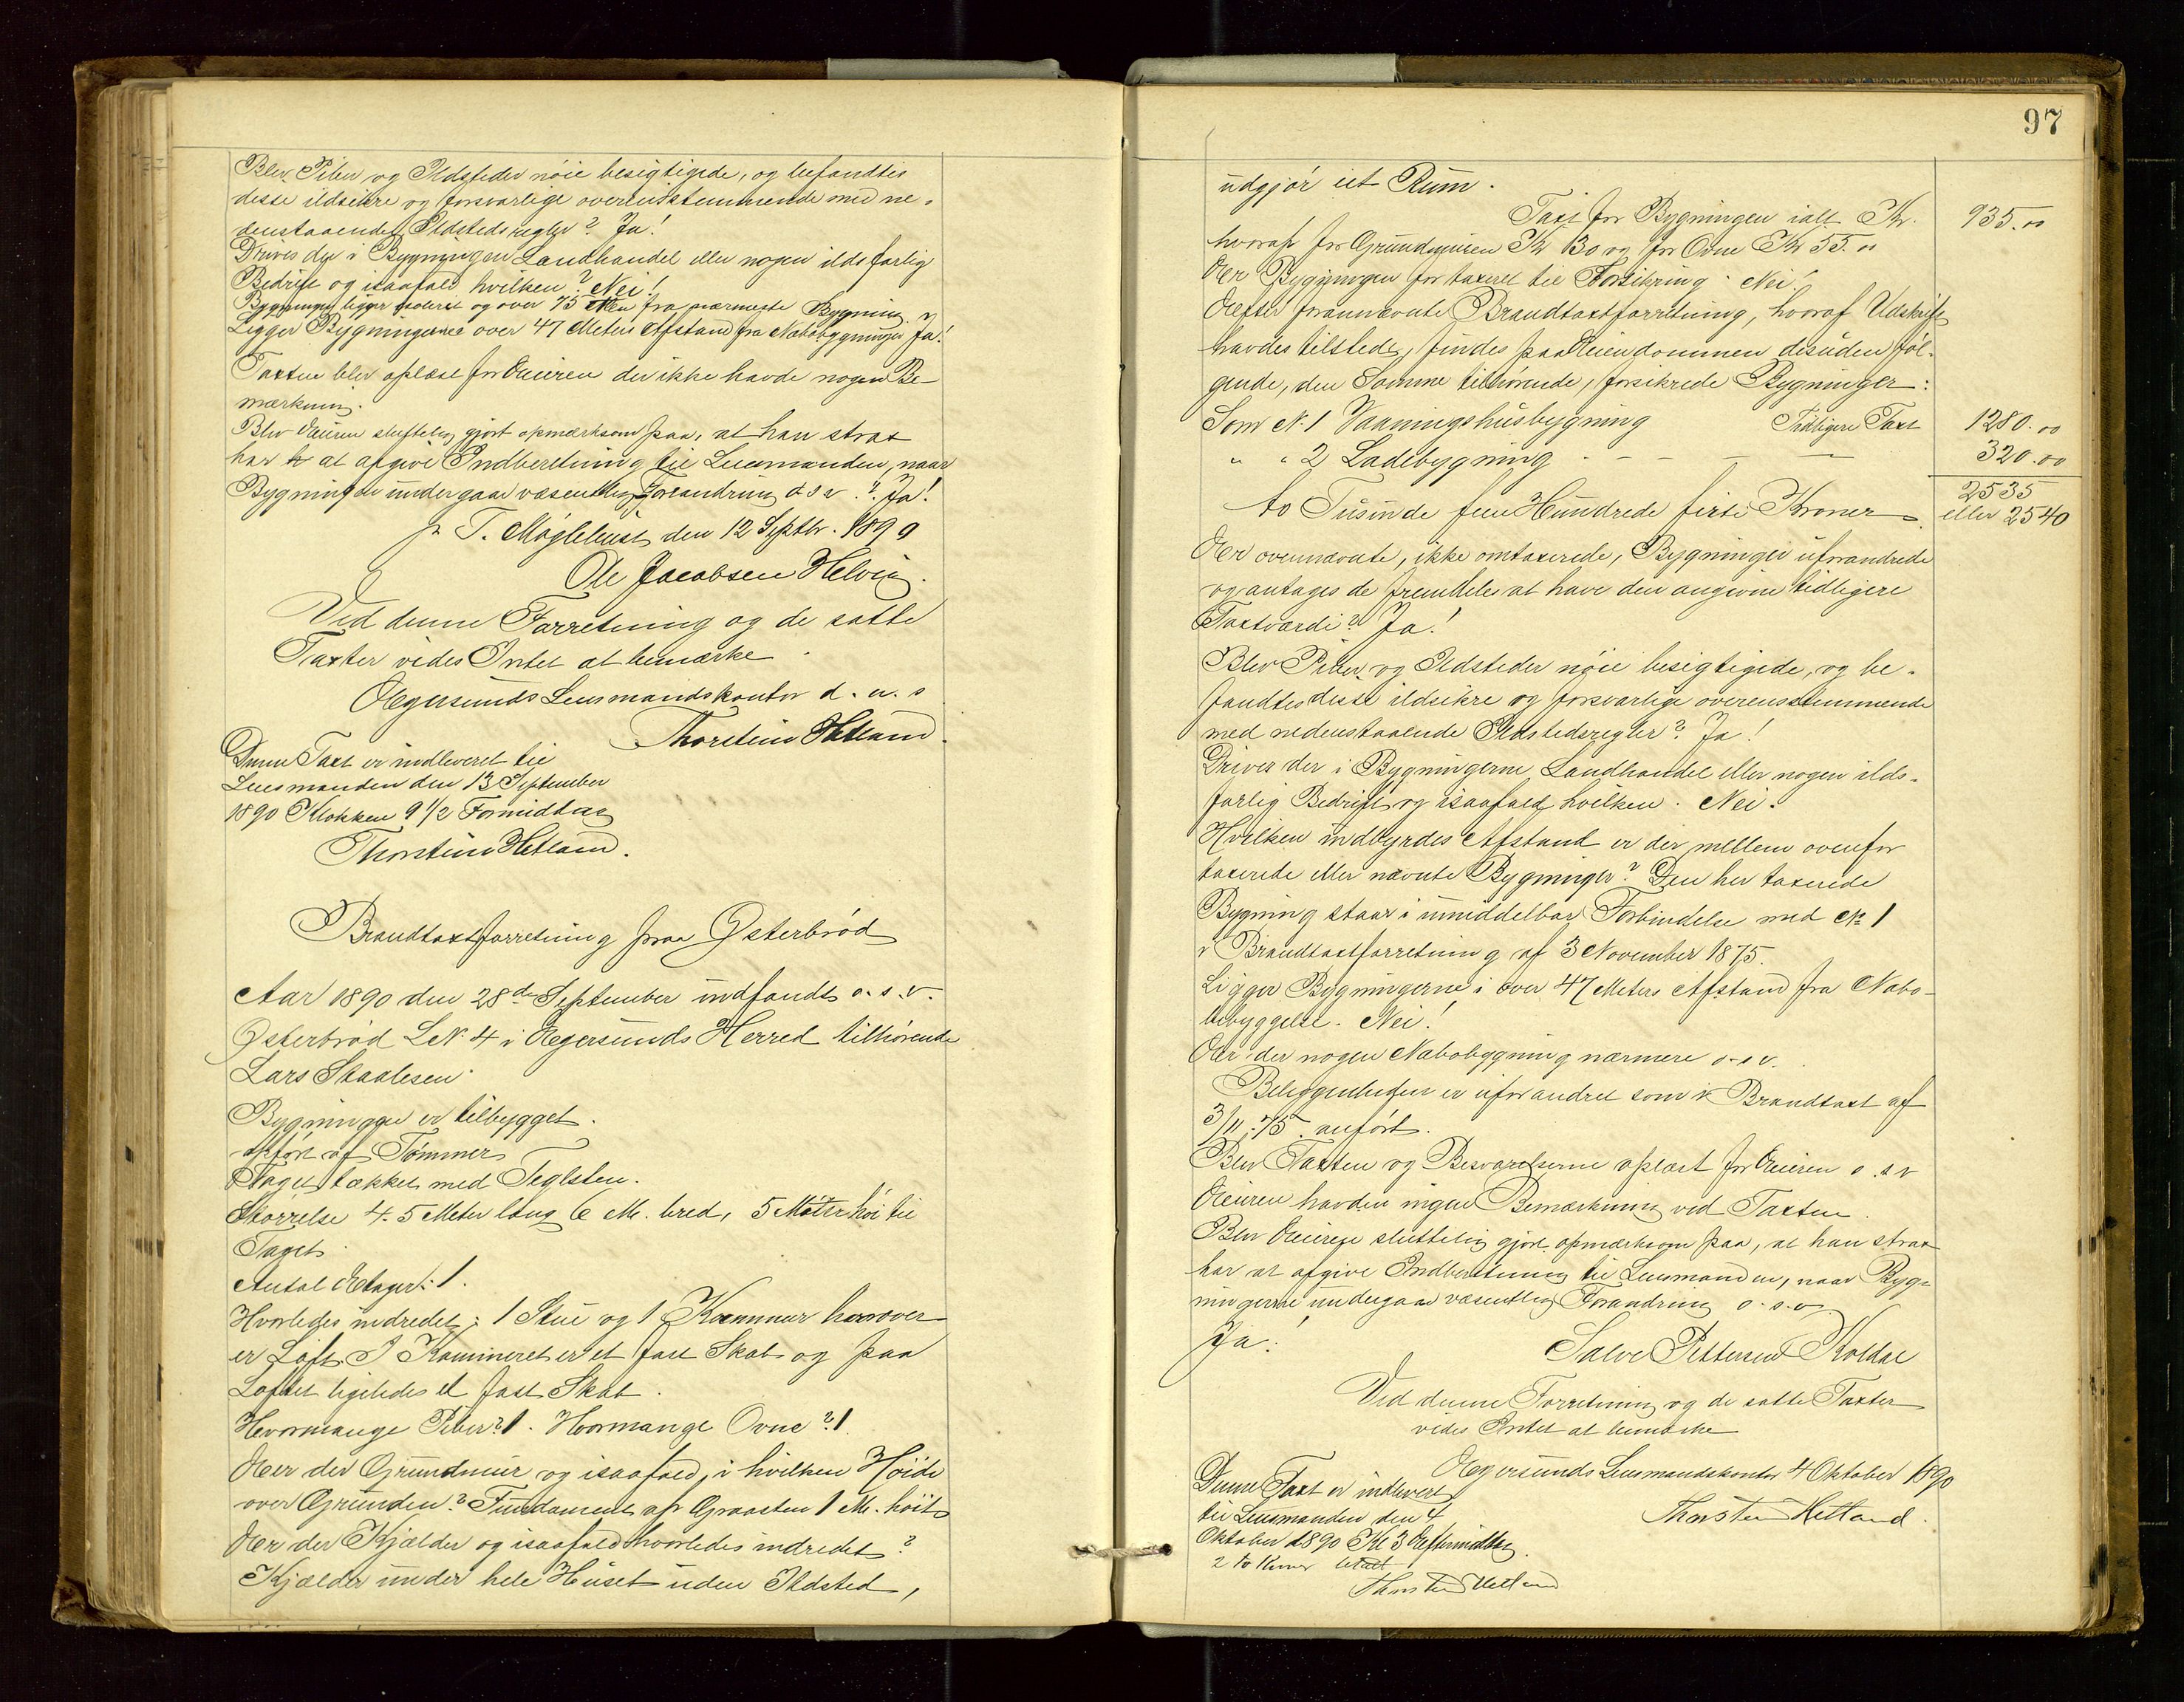 Blev Piber og Ildsteder nöie besigtigede, og befandtes
disse ildsikre og forsvarlige overensstemmende med ne-
denstaaende Ildstedsregler? Ja!
Drives der i Bygningen Landhandel eller nogen ildsfarlig
Bedrift og isaafald hvilken? Nei!
Bygningen ligger isoleret og over 75 Alen fra nærmeste Bygning
Ligger Bygningerne over 47 Meters Afstand fra Nabobygninger Ja!
Taxten blev oplæst for Eieren der ikke havde nogen Be-
mærkning.
Blev Eieren sluttelig gjort opmærksom paa, at han strax
har at afgive Indberetning til Lensmanden, naar
Bygningen undergaar væsentlig Forandring o s v.? Ja!
p. T. Möglebust den 12 Septbr. 1890
Ole Jacobsen Helvig.
Ved denne Forretning og de satte
Taxter vides Intet at bemærke
Egersunds Lensmandskontor d. u. s
Thorstein Hetland.
Denne Taxt er indleveret til
Lensmanden den 13 September
1890 Klokken 9 1/2 Formiddag
Thorstein Hetland.
Brandtaxtforretning paa Østerbröd
Aar 1890 den 28de September indfandt o. s. v.
Østerbröd L. N. 4 i Egersunds Herred tilhörende
Lars Staalesen
Bygningen er tilbygget.
opfört af Tömmer
Taget tækket med Teglsten.
Störrelse 4.5 Meter lang 6 M. bred, 5 Meter höi til
Taget
Antal Etager: 1.
Hvorledes indredet: 1 Stue og 1 Kammer hvorover
er Loft. I Kammeret er et fast Skab og paa
Loftet ligeledes et fast Skab.
Hvormange Piber? 1. Hvormange Ovne? 1.
Er der Grundmur og isaafald, i hvilken Höide
over Grunden? Fundament af Graasten 1 M. höit
Er der Kjælder og isaafald hvorledes indredet?
Kjælder under hele Huset uden Ildsted,
97
udgjör eet Rum.
Taxt for Bygningen ialt Kr. 935.00
hvoraf for Grundmuren Kr 130 og for Ovne Kr 55.00
Er Bygningen for taxeret til Forsikring Nei!
Efter frannævnte Brandtaxtforretning, hvoraf Udskrift
havdes tilstede, findes paa Eiendommen desuden föl-
gende, den Samme tilhörende, forsikrede Bygninger:
Som N. 1 Vaaningshusbygning Tidligere Taxt 1280.00
" " 2 Ladebygning - - - - 320.00
2535
to Tusinde fem Hundrede firti Kroner eller 2540
Er ovennævnte, ikke omtaxerede, Bygninger uforandrede
og antages de fremdeles at have den angivne tidligere
Taxtværdi? Ja!
Blev Piber og Ildsteder nöie besigtigede, og be-
fandtes disse ildsikre og forsvarlige overensstemmende
med nedenstaaende Ildstedsregler? Ja!
Drives der i Bygningerne Landhandel eller nogen ilds-
farlig Bedrift og isaafald hvilken. Nei.
Hvilken indbyrdes Afstand er der mellem ovenfor
taxerede eller nævnte Bygninger? Den her taxerede
Bygning staar i umiddelbar Forbindelse med No 1
i Brandtaxtforretning af 3 November 1875.
Ligger Bygningerne i over 47 Meters Afstand fra Nabo-
bebyggelse. Nei!
Er der nogen Nabobygning nærmere o. s v.
Beliggenheden er uforandret som i Brandtaxt af
3/11.75. anfört.
Blev Taxten og Besvarelserne oplæst for Eieren o. s v
Eieren havden ingen Bemærkning ved Taxten.
Blev Eieren sluttelig gjort opmærksom paa, at han strax
har at afgive Indberetning til Lensmanden, naar Byg-
ningerne undergaar væsentlig Forandring o. s. v.
Ja!
Salve Pettersen Koldal
Ved denne Forretning og de satte Taxter
vides Intet at bemærke
Egersunds Lensmandskontor 4 Oktober 1890
Thorstein Hetland.
Denne Taxt er indleveret
til Lensmanden den 4
Oktober 1890 Kl 3 Eftermiddag.
2 to Kroner betalt
Thorstein Hetland